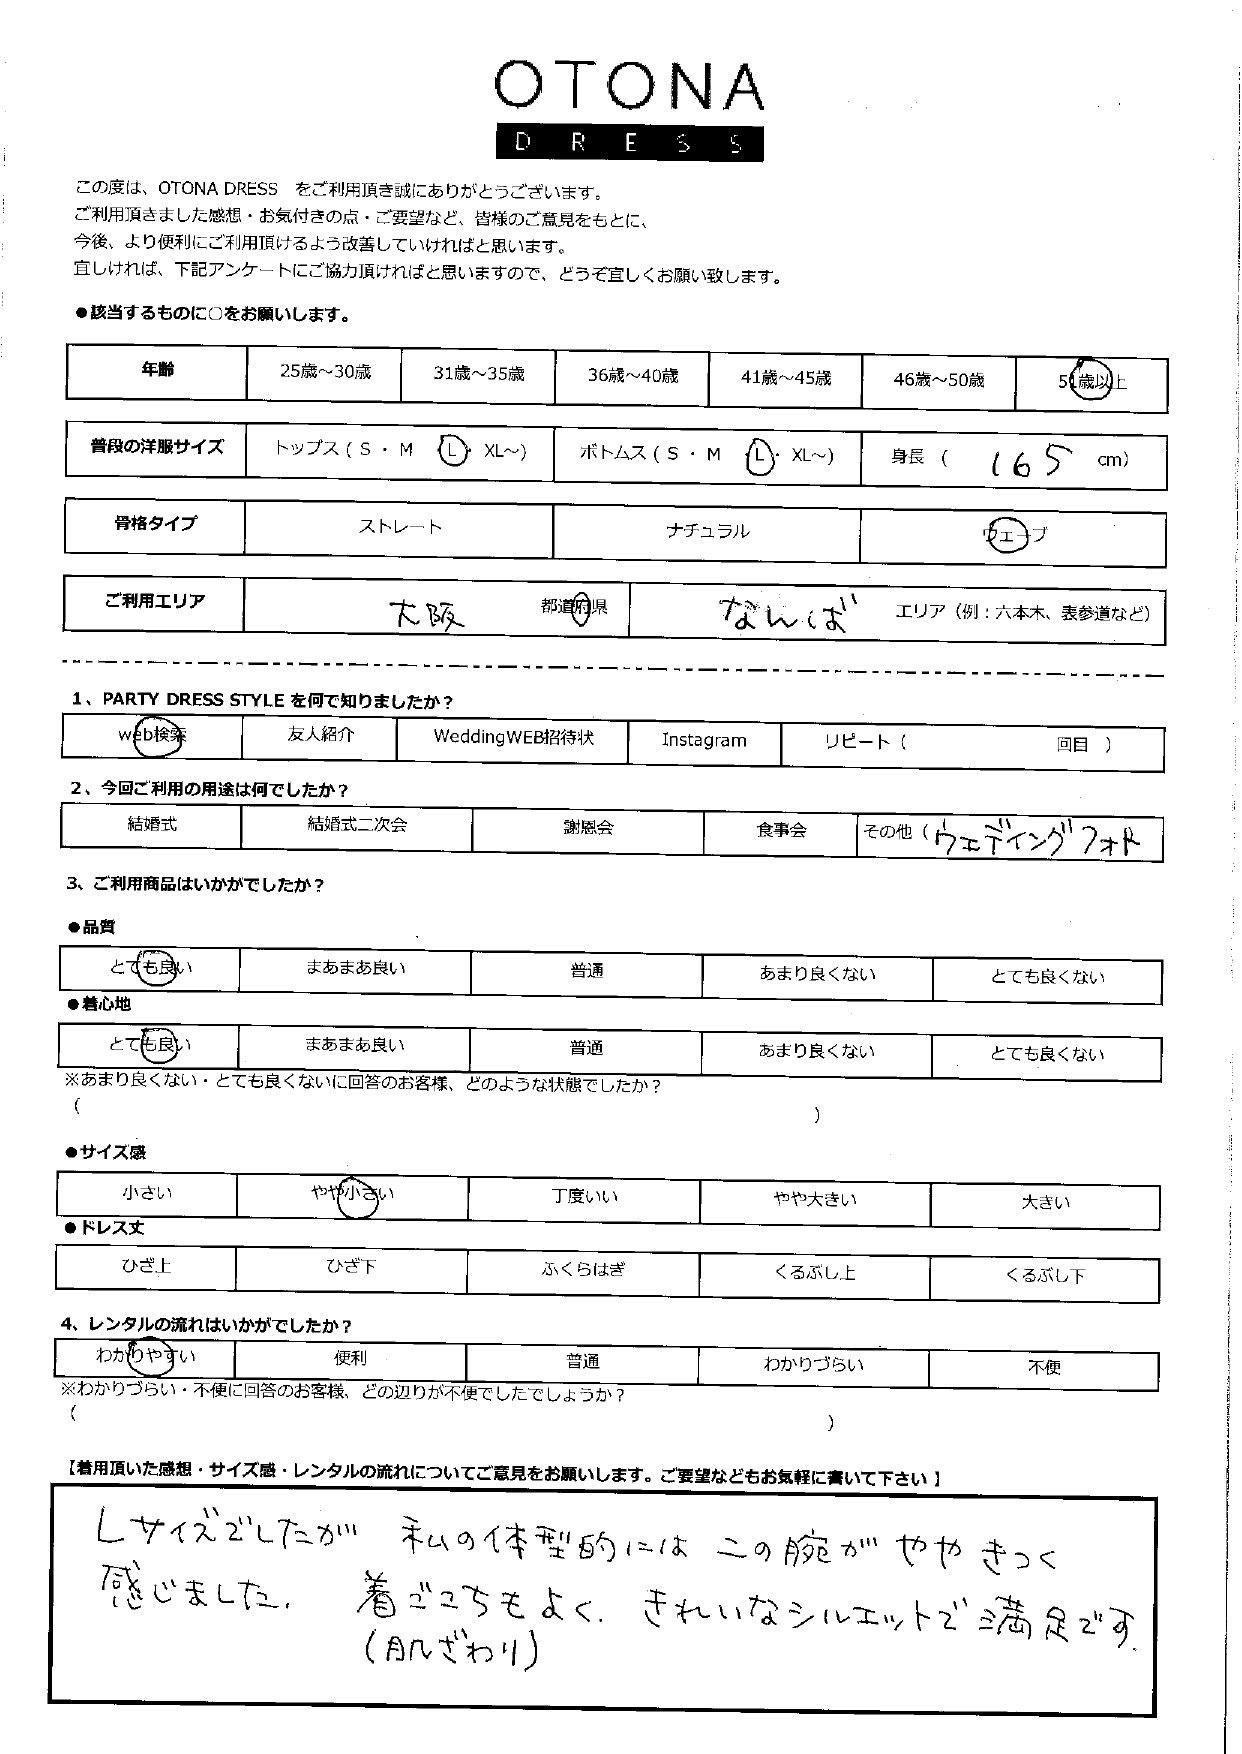 OTONA
DRESS
この度は、OTONA DRESS をご利用頂き誠にありがとうございます。
ご利用頂きました感想・お気付きの点・ご要望など、皆様のご意見をもとに、
今後、より便利にご利用頂けるよう改善していければと思います。
宜しければ、下記アンケートにご協力頂ければと思いますので、どうぞ宜しくお願い致します。
●該当するものに○をお願いします。
年齢 25歳～30歳 31歳～35歳 36歳～40歳 41歳～45歳 46歳～50歳 51歳以上
普段の洋服サイズ トップス ( S ・ M L ・ XL～) ボトムス ( S ・ M L ・ XL～) 身長 ( 165 cm)
骨格タイプ ストレート ナチュラル ウェーブ
ご利用エリア 大阪 都道府県 なんば エリア（例：六本木、表参道など）
1、PARTY DRESS STYLE を何で知りましたか？
web検索 友人紹介 WeddingWEB招待状 Instagram リピート ( 回目 )
2、今回ご利用の用途は何でしたか？
結婚式 結婚式二次会 謝恩会 食事会 その他 ( ウェディングフォト
3、ご利用商品はいかがでしたか？
●品質
とても良い まあまあ良い 普通 あまり良くない とても良くない
●着心地
とても良い まあまあ良い 普通 あまり良くない とても良くない
※あまり良くない・とても良くないに回答のお客様、どのような状態でしたか？
( )
●サイズ感
小さい やや小さい 丁度いい やや大きい 大きい
●ドレス丈
ひざ上 ひざ下 ふくらはぎ くるぶし上 くるぶし下
4、レンタルの流れはいかがでしたか？
わかりやすい 便利 普通 わかりづらい 不便
※わかりづらい・不便に回答のお客様、どの辺りが不便でしたでしょうか？
( )
【着用頂いた感想・サイズ感・レンタルの流れについてご意見をお願いします。ご要望などもお気軽に書いて下さい】
Lサイズでしたが 私の体型的には二の腕がややきつく
感じました. 着ごこちもよく. きれいなシルエットで満足です.
(肌ざわり)